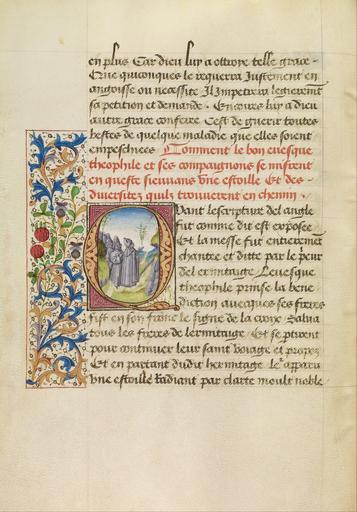 en plus Car dieu luy a ottroye telle grace .
Que quiconques le requerra Justement en
angoisse ou necessite Il Impetrera legierement
sa peticion et demande . Encoires luy a dieu
autre grace conferee Cest de guerir toutes
bestes de quelque maladie que elles soient
empeschiees Comment le bon euesque
theophile et ses compaignons se mistrent
en queste sieuuans vne estoille Et des
diuersitez quilz trouuerent en chemin .
Quant lescripture del angle
fut comme dit est exposee
Et la messe fut entierement
chantee et ditte par le prieur
del ermitaige Leuesque
theophile prinse la bene
diction auecques ses freres
fist en son front le signe de la croix Salua
tous les freres de lermitaige . Et se partirent
pour continuer leur saint voiage et propoz
Et en partant dudit hermitaige le apparu
vne estoille Radiant par clarte moult noble